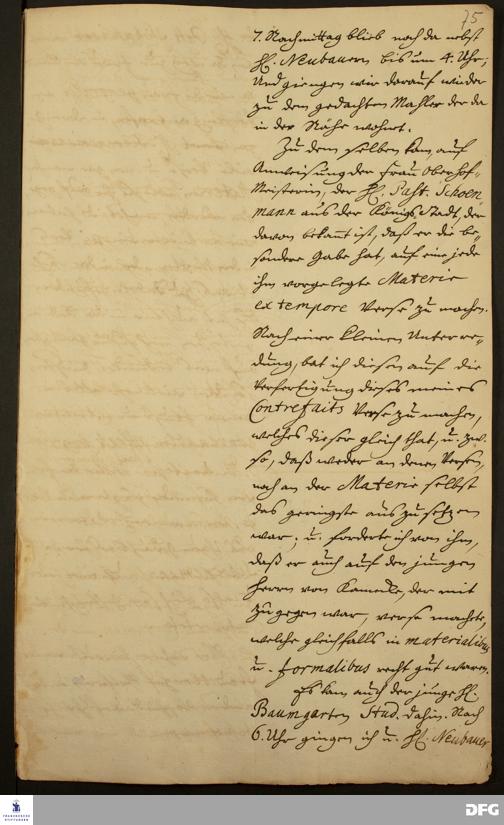 75
7. Nachmittag blieb noch da nebst
H. Neubauern bis um 4. Uhr;
Und giengen wir darauf wieder
zu dem gedachten Mahler der da
in der Nähe wohnet.
Zu dem selben kam, auf
Anweisung der Frau Oberhof-
Meisterin, der H. Past. Schoen-
mann aus der Königs-Stadt, der
davon bekant ist, daß er die be-
sondere Gabe hat, auf eine jede
ihm vorgelegte Materie
ex tempore Verse zu machen.
Nach einer kleinen Unterre-
dung, bat ich diesen auf die
Verfertigung dieses meines
Contrefaits Verse zu machen,
welches dieser gleich that, u. zw.
so, daß weder an denen Versen,
noch an der Materie selbst
das geringste auszusetzen
war; u. forderte ich von ihm,
daß er auch auf den jungen
Herrn von Kameke, der mit
zugegen war, verse machte,
welche gleichfalls in materialibus
u. formalibus recht gut waren.
Es kam auch der junge H.
Baumgarten Stud. dahin. Nach
6. Uhr giengen ich u. H. Neubauer
FRANCKESCHE
STIFTUNGEN
DFG